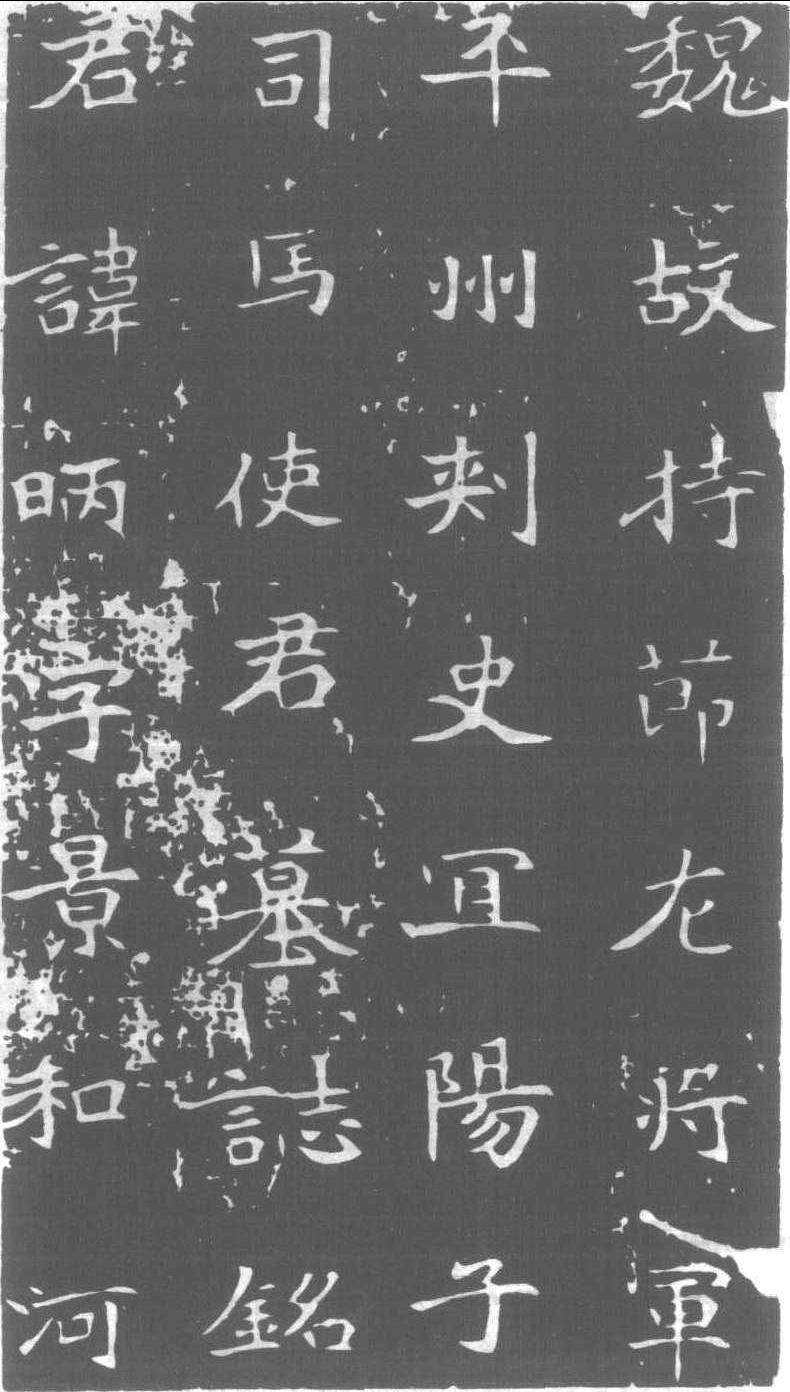 魏故持節左將軍
平州刺史宜陽子
司馬使君墓誌銘
君諱昞字景和河